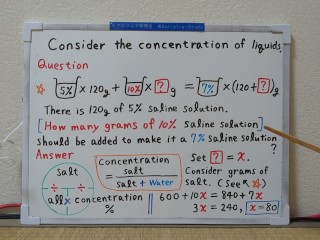 Consider the concentration of liquids.
Question
☆ 5% × 120g + 10% × ? g = 7% × (120+?)g
There is 120g of 5% saline solution.
[How many grams of 10% saline solution]
should be added to make it a 7% saline solution ?
Answer
Concentration
= salt / salt + Water
Set ? = x.
Consider grams of
salt. (See ☆)
salt
÷ ÷
all × concentration
%
600 + 10x = 840 + 7x
3x = 240, x = 80